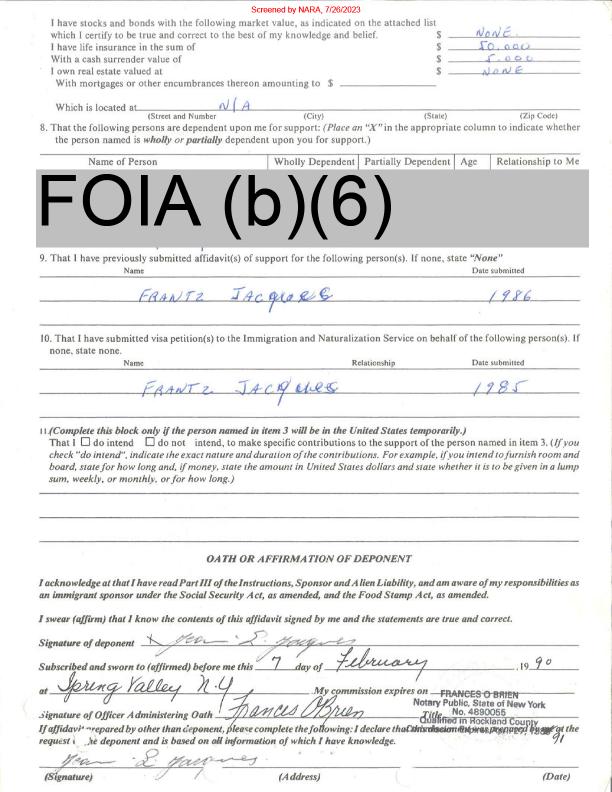 Screened by NARA, 7/26/2023
I have stocks and bonds with the following market value, as indicated on the attached list
which I certify to be true and correct to the best of my knowledge and belief. $ NONE
I have life insurance in the sum of $ 50.000
With a cash surrender value of $ 5.000
I own real estate valued at $ NONE
With mortgages or other encumbrances thereon amounting to $
Which is located at N/A
(Street and Number) (City) (State) (Zip Code)
8. That the following persons are dependent upon me for support: (Place an "X" in the appropriate column to indicate whether
the person named is wholly or partially dependent upon you for support.)
Name of Person Wholly Dependent Partially Dependent Age Relationship to Me
FOIA (b)(6)
9. That I have previously submitted affidavit(s) of support for the following person(s). If none, state "None"
Name Date submitted
FRANTZ JACQUES 1986
10. That I have submitted visa petition(s) to the Immigration and Naturalization Service on behalf of the following person(s). If
none, state none.
Name Relationship Date submitted
FRANTZ JACQUES 1985
11.(Complete this block only if the person named in item 3 will be in the United States temporarily.)
That I ☐ do intend ☐ do not intend, to make specific contributions to the support of the person named in item 3. (If you
check "do intend", indicate the exact nature and duration of the contributions. For example, if you intend to furnish room and
board, state for how long and, if money, state the amount in United States dollars and state whether it is to be given in a lump
sum, weekly, or monthly, or for how long.)
OATH OR AFFIRMATION OF DEPONENT
I acknowledge at that I have read Part III of the Instructions, Sponsor and Alien Liability, and am aware of my responsibilities as
an immigrant sponsor under the Social Security Act, as amended, and the Food Stamp Act, as amended.
I swear (affirm) that I know the contents of this affidavit signed by me and the statements are true and correct.
Signature of deponent X Jean L. Jacques
Subscribed and sworn to (affirmed) before me this 7 day of February ,19 90
at Spring Valley N.Y My commission expires on
FRANCES O'BRIEN
Notary Public, State of New York
No. 4890055
Signature of Officer Administering Oath Frances O'Brien Title
Qualified in Rockland County
If affidavit prepared by other than deponent, please complete the following: I declare that this document was prepared by me at the
91
request the deponent and is based on all information of which I have knowledge.
Jean L Jacques
(Signature) (Address) (Date)